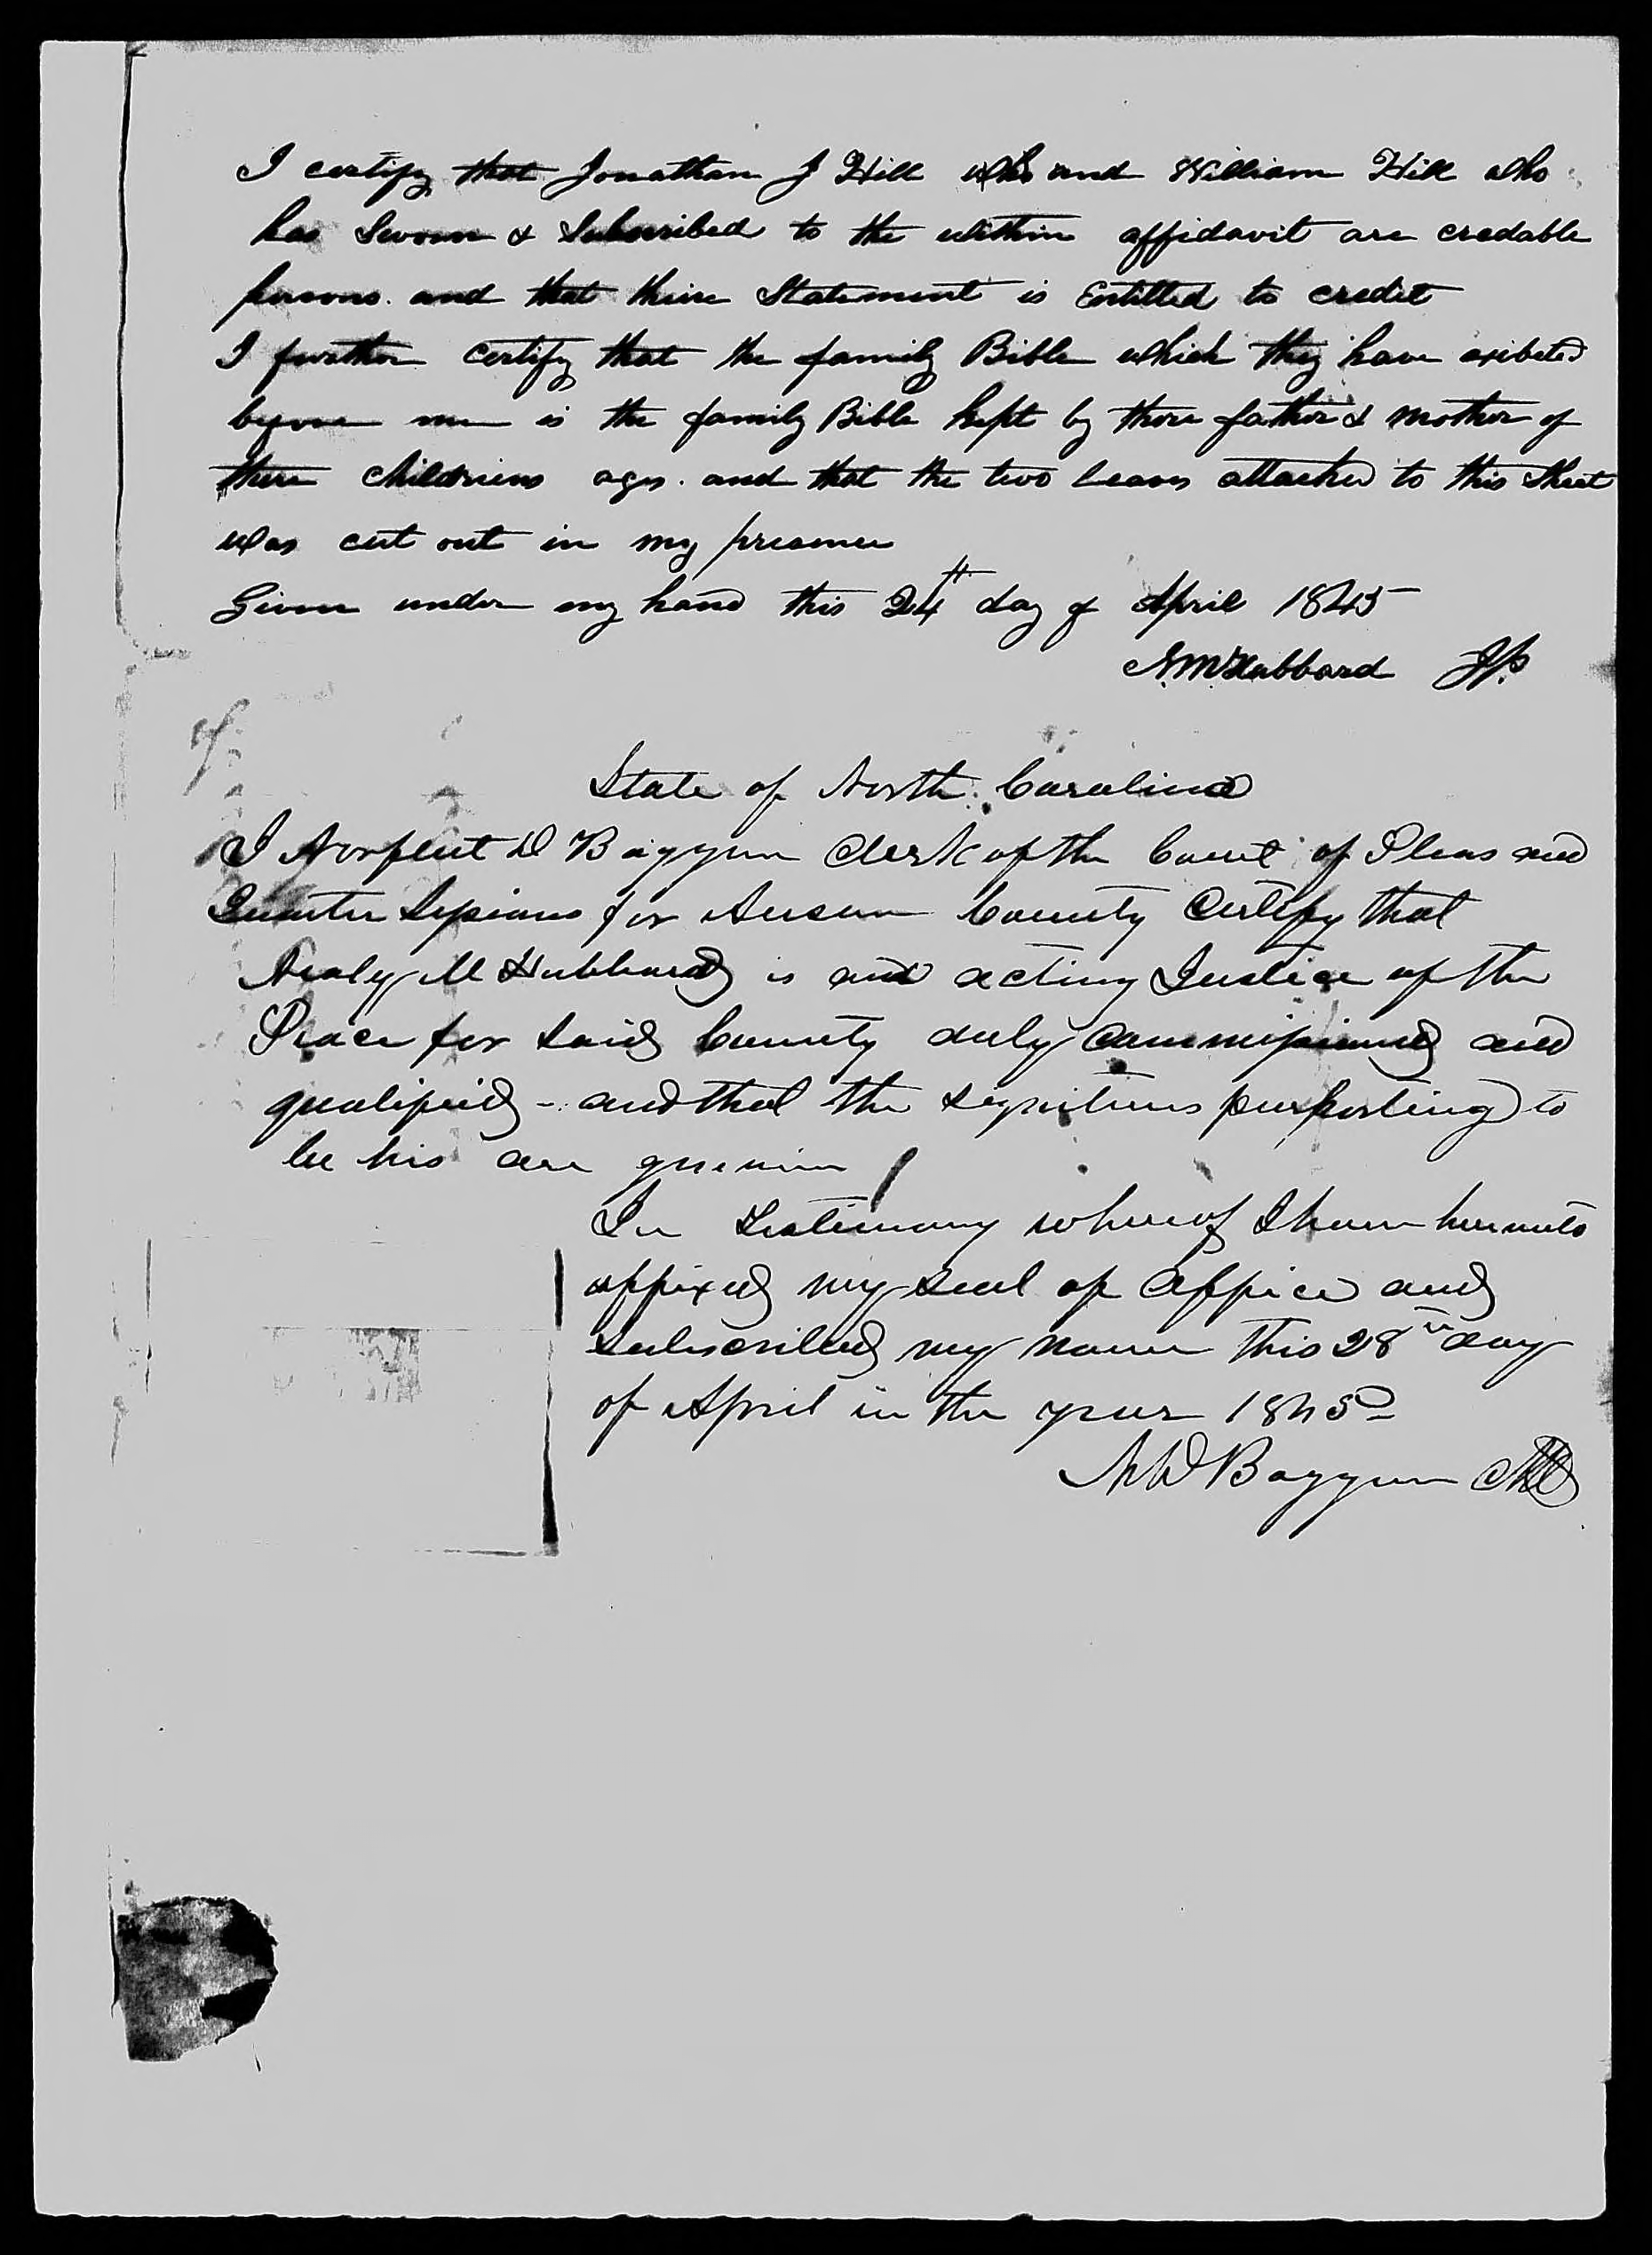 I certify that Jonathan J Hill who and William Hill who
has Sworn & Subscribed to the within affidavit are credable
persons. and that thire Statement is Entitled to credit
I further certify that the family Bible which they have exibeted
before me is the family Bible kept by there father & mother of
there childriens ages. and that the two leaves attached to this sheet
was cut out in my presence
Given under my hand this 24th day of April 1845
N. M. Hubbard JP.
State of North Carolina
I Norfleet D Boggan Clerk of the Court of Pleas and
Quarter Sessions for Anson County Certify that
Nealy M Hubbard is and acting Justice of the
Peace for said County duly commissioned and
qualified - and that the signitures purporting to
be his are genuine
In Testimony whereof I have hereunto
affixed my seal of office and
subscribed my name this 28th day
of April in the year 1845
N D Boggan